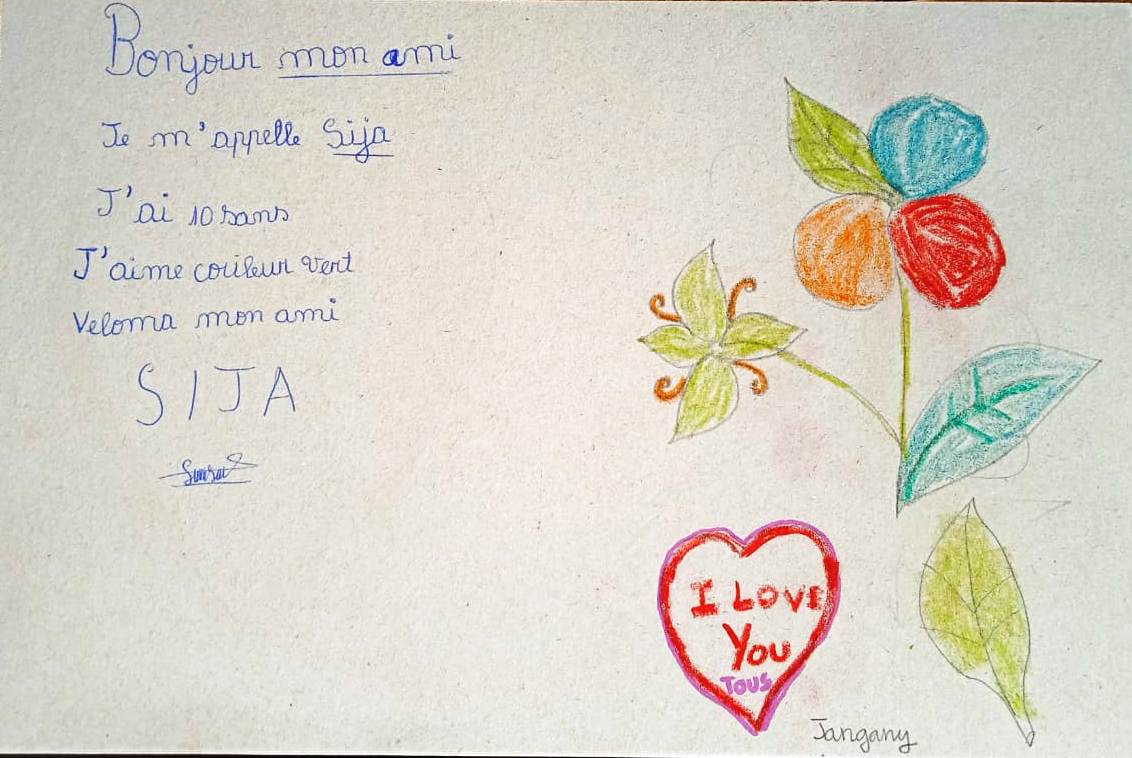 Bonjour mon ami
Je m'appelle Sija
J'ai 10 sans
J'aime couleur vert
Veloma mon ami
SIJA
I LOVE
YOU
TOUS
Jangany